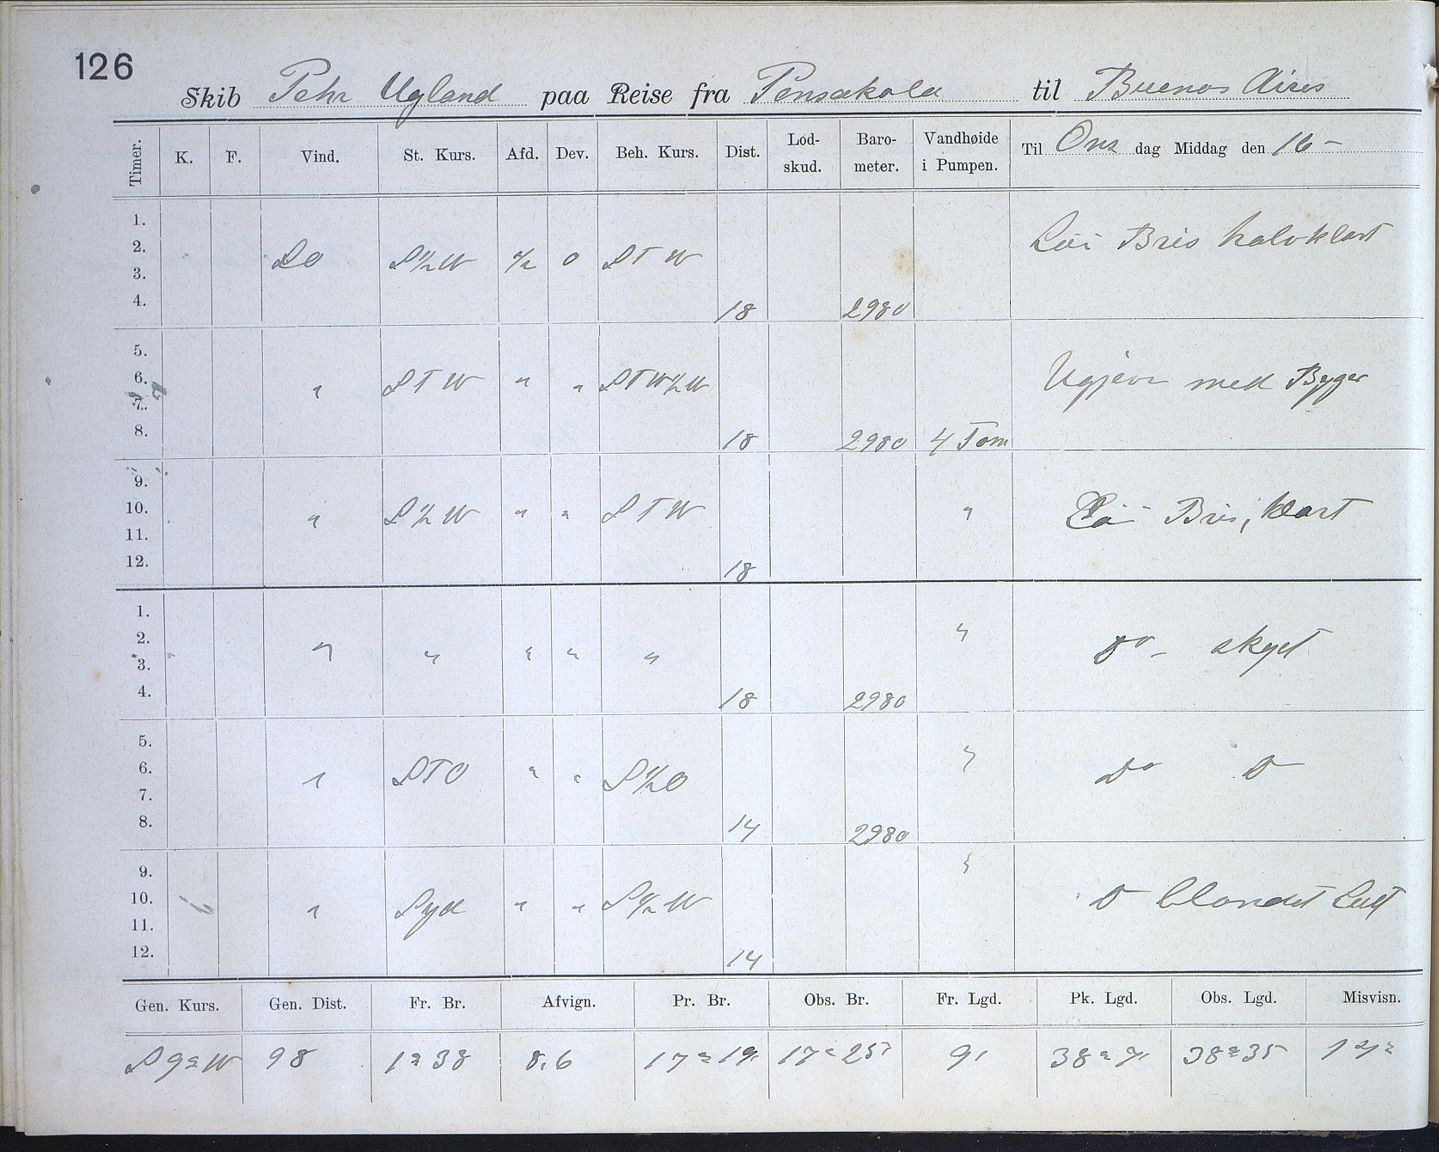 126
Skib Pehr Ugland paa Reise fra Pensakola til Buenos Aires
Timer. K. F. Vind. St. Kurs. Afd. Dev. Beh. Kurs. Dist. Lod-skud. Baro-meter. Vandhøide i Pumpen. Til Ons dag Middag den 16 –
1.
2. SO S½W ½ 0 STW Lai Bris halvklart
3.
4. 18 2980
5.
6. " STW " " STW½W Ugjevn med Byger
7.
8. 18 2980 4 Tom
9.
10. " S½W " " STW " Lai Bris, klart
11.
12. 18
1.
2. " " " " " " Do – skyet
3.
4. 18 2980
5.
6. " STO " " S½O " Do D
7.
8. 14 2980
9.
10. " Syd " " S½W " D blandet Luft
11.
12. 14
Gen. Kurs. Gen. Dist. Fr. Br. Afvign. Pr. Br. Obs. Br. Fr. Lgd. Pk. Lgd. Obs. Lgd. Misvisn.
S 9° W 98 1° 38 8,6 17° 19, 17° 25' 9, 38° 38° 35